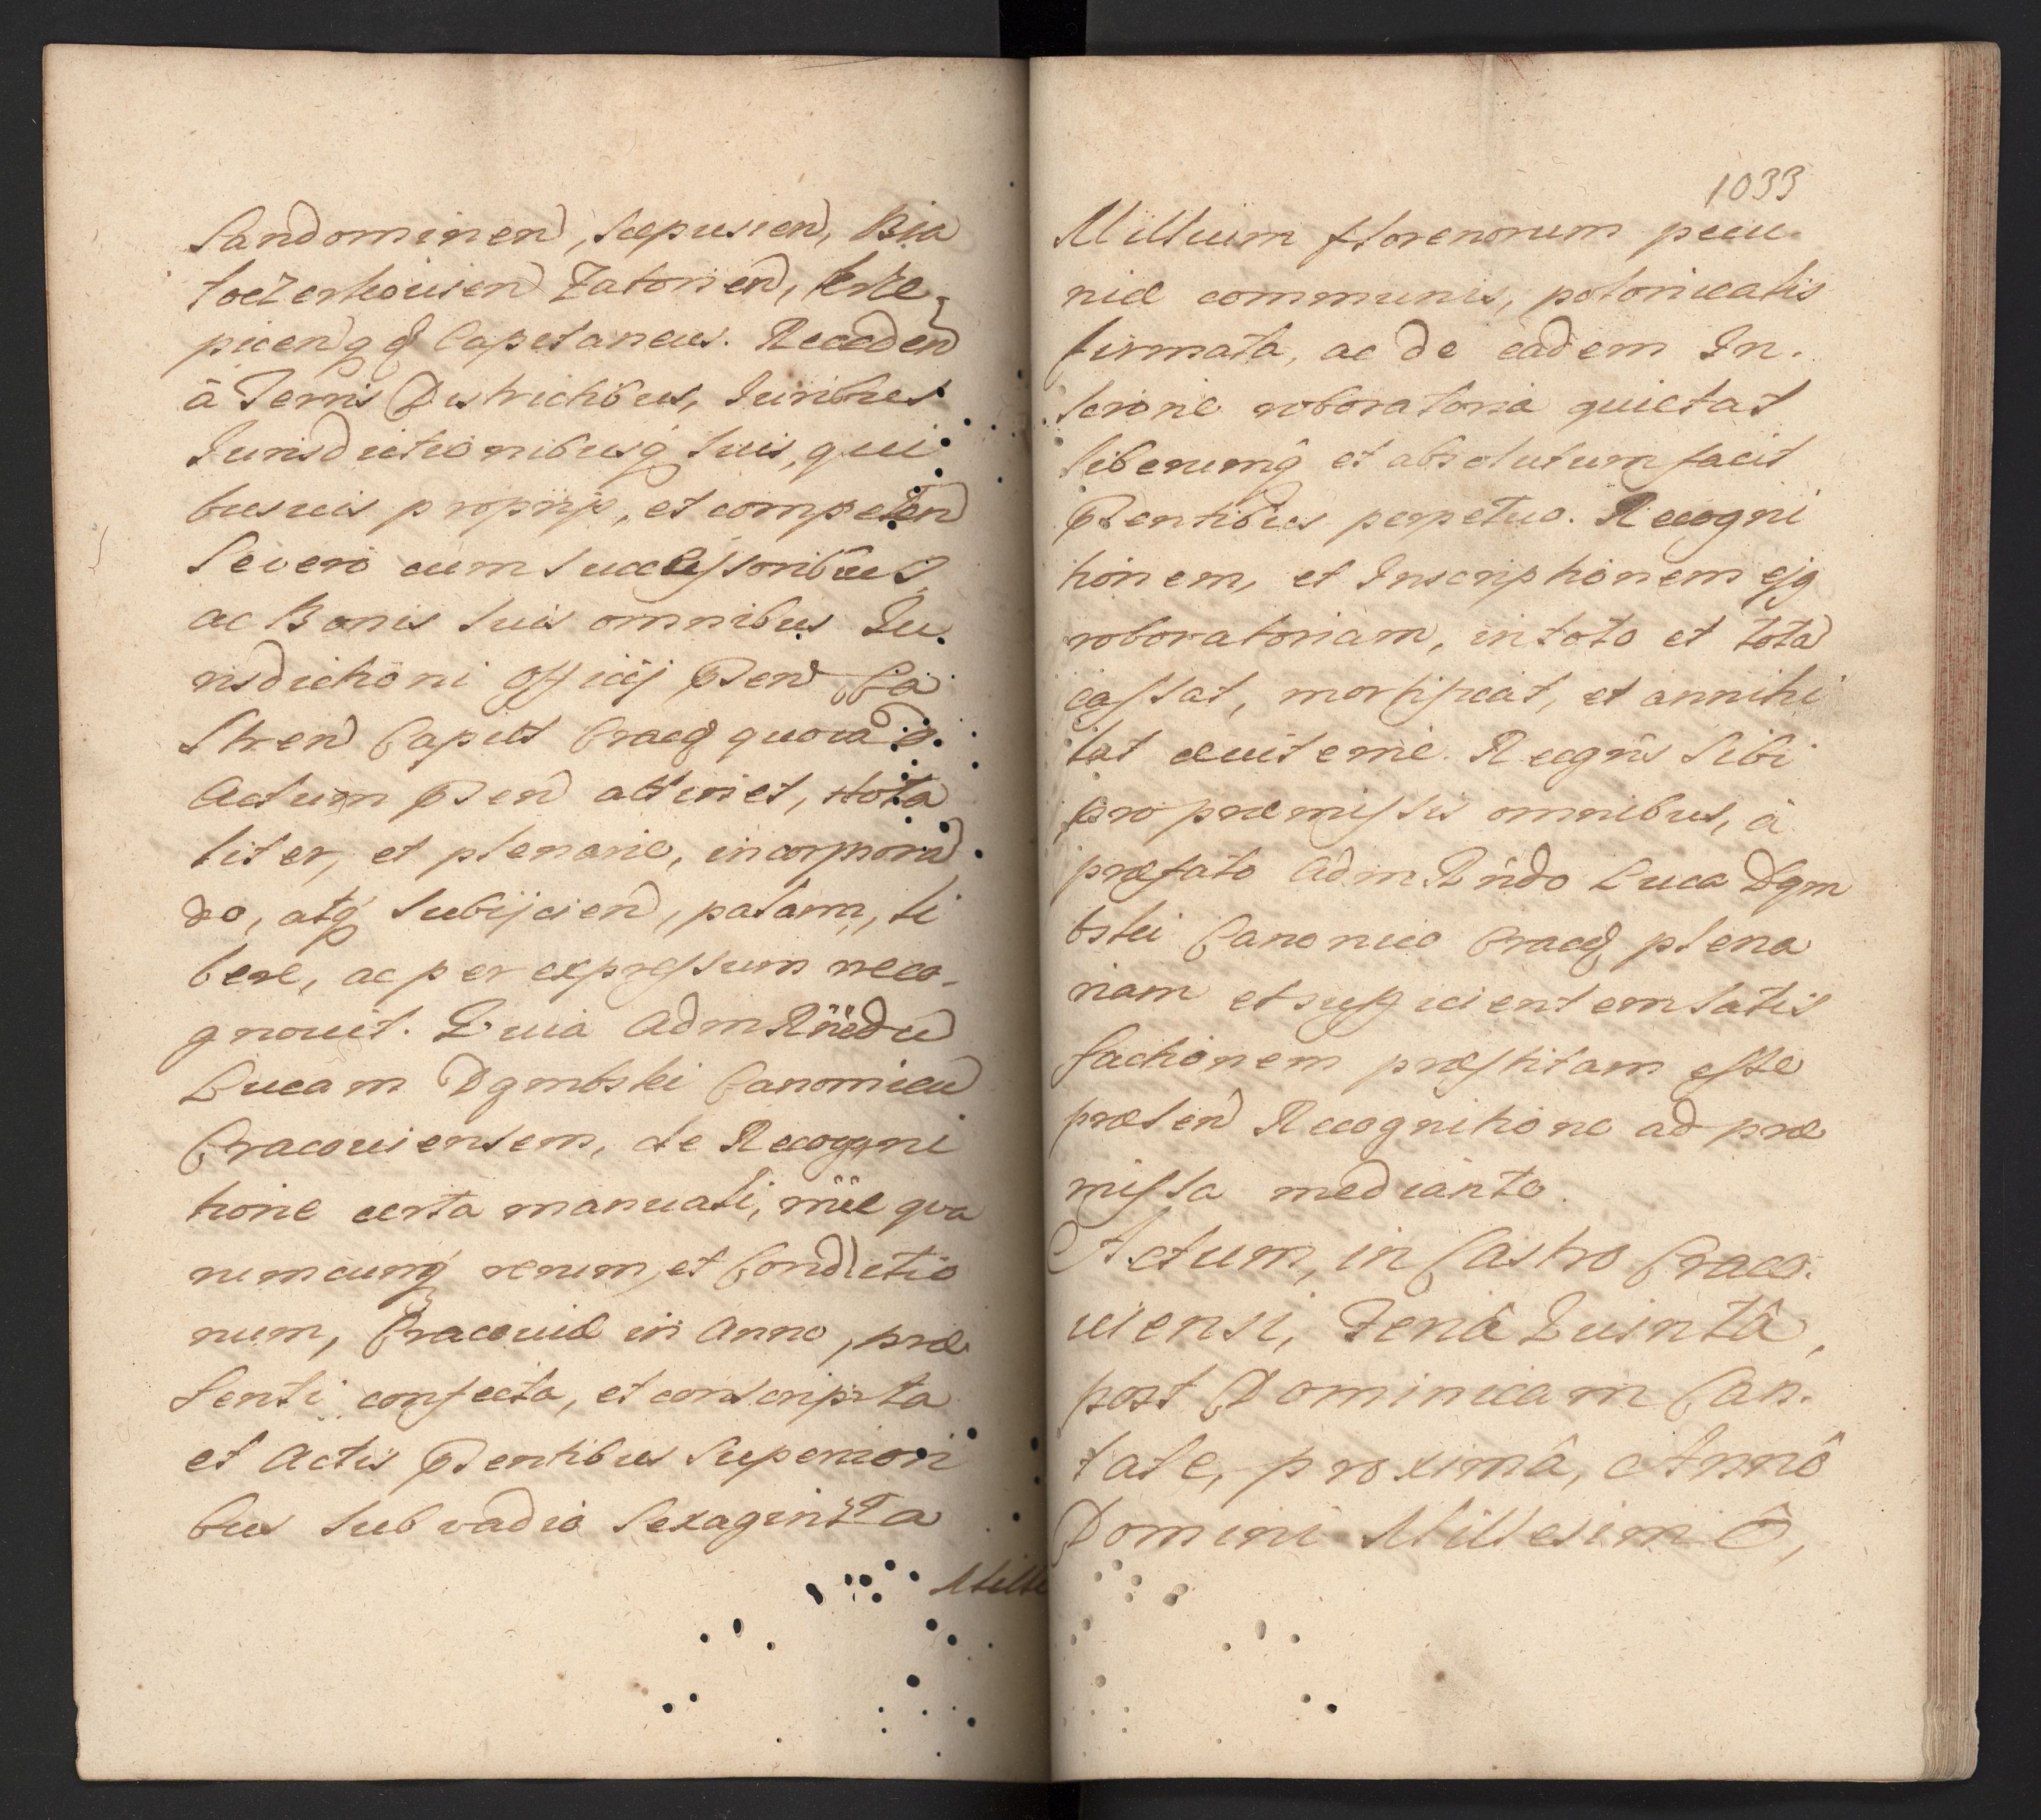 Sandominen, Scepusien, Bia
loczerkovien Zatorien, Krze,
picenqq Capitaneus. Receden
à Terris Districtibus, Iuribus
Iurisdictionibusq suis, qui
busuis proprijs, et competen
Se vero cum successoribus
ac Bonis suis omnibus Iu.
risdictioni Officij Psen Ca
stren Capits Crac quoad
Actum Psen attinet, tota
liter, et plenarie, incorporan
do, atq subijcien, palam, li
bere, ac per expressum reco,
gnovit. Quia Adm Rndu
Lucam Dgmbski Canonicu
Cracoviensem, de Recogni
tione certa manuali, rõe qua
rumcunq rerum, et Conditio
num, Cracoviæ in Anno, præ
senti confecta, et conscripta
et Actis Psentibus Superiori
bus sub vadio Sexaginta
Mille
1033
Millium florenorum pecu
niæ communis, polonicalis
firmata, ac de eadem In.
scrõne roboratoria quietat
liberumq et absolutum facit
Psentibus perpetuo. Recogni
tionem, et Inscriptionem ejq
roboratoriam, in toto et tota
cassat, mortificat, et annihi
lat æviternè. Recgñs Sibi
pro præmissis omnibus, à
præfato Adm Rndo Luca Dgm
bski Canonico Crac plena
riam et sufficientem satis
factionem præstitam esse
præsen Recognitione ad præ
missa mediante.
Actum, in Castro Craco.
viensi, Feriâ Quintâ,
post Dominicam Can.
tate, proximâ, Annô
Domini Millesimô,